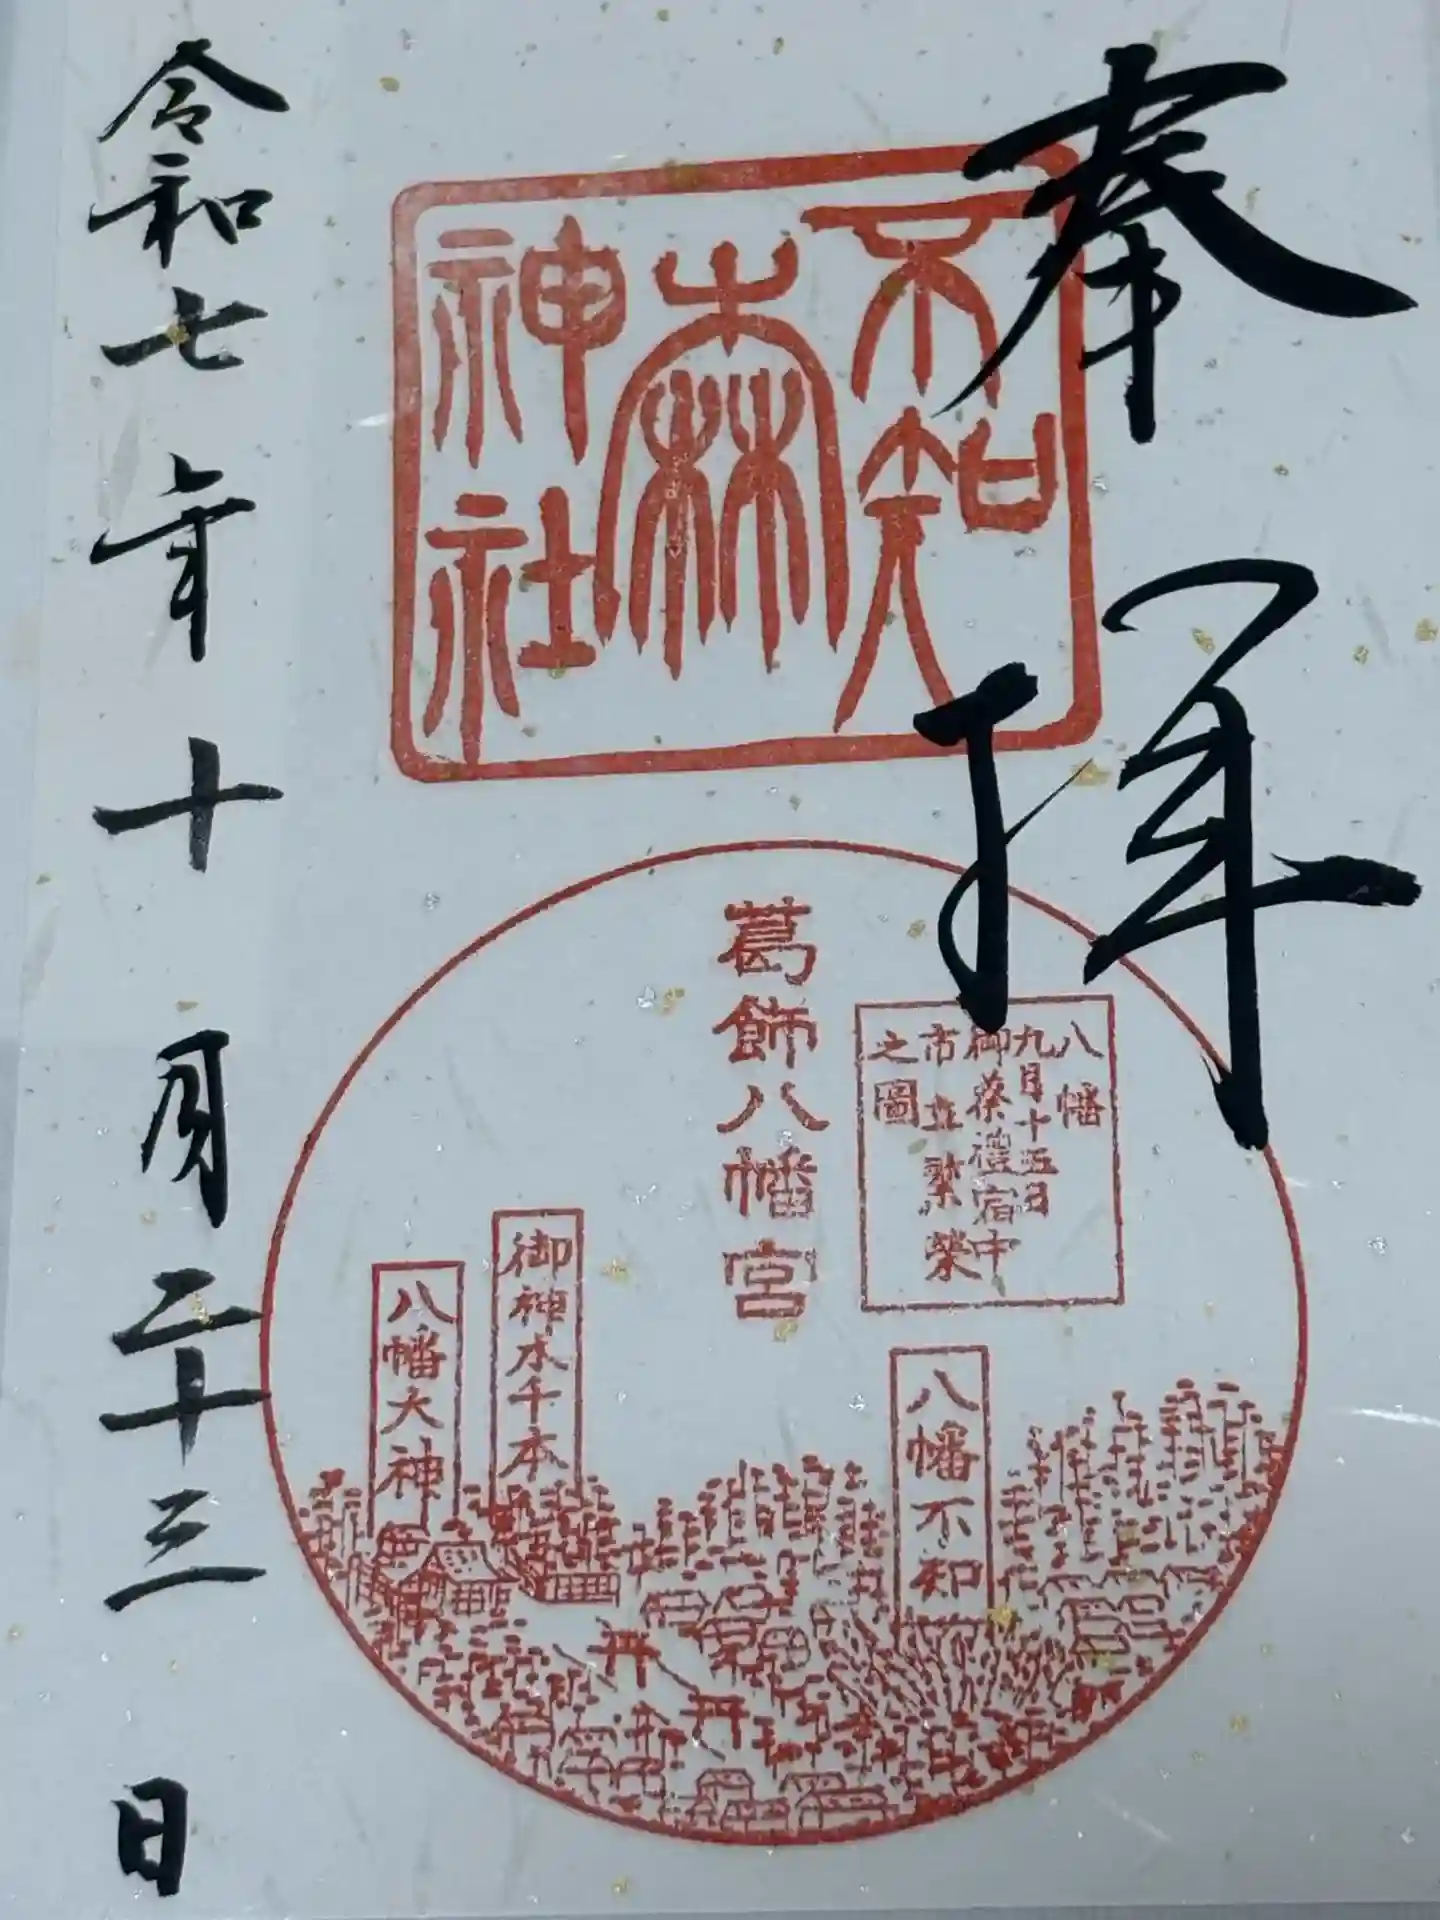 奉拝
不知
森
神社
葛飾八幡宮
八幡
九月十五日
御祭禮宿中
市立繁榮
之圖
八幡不知
御神木千本
八幡大神
令和七年十月二十三日